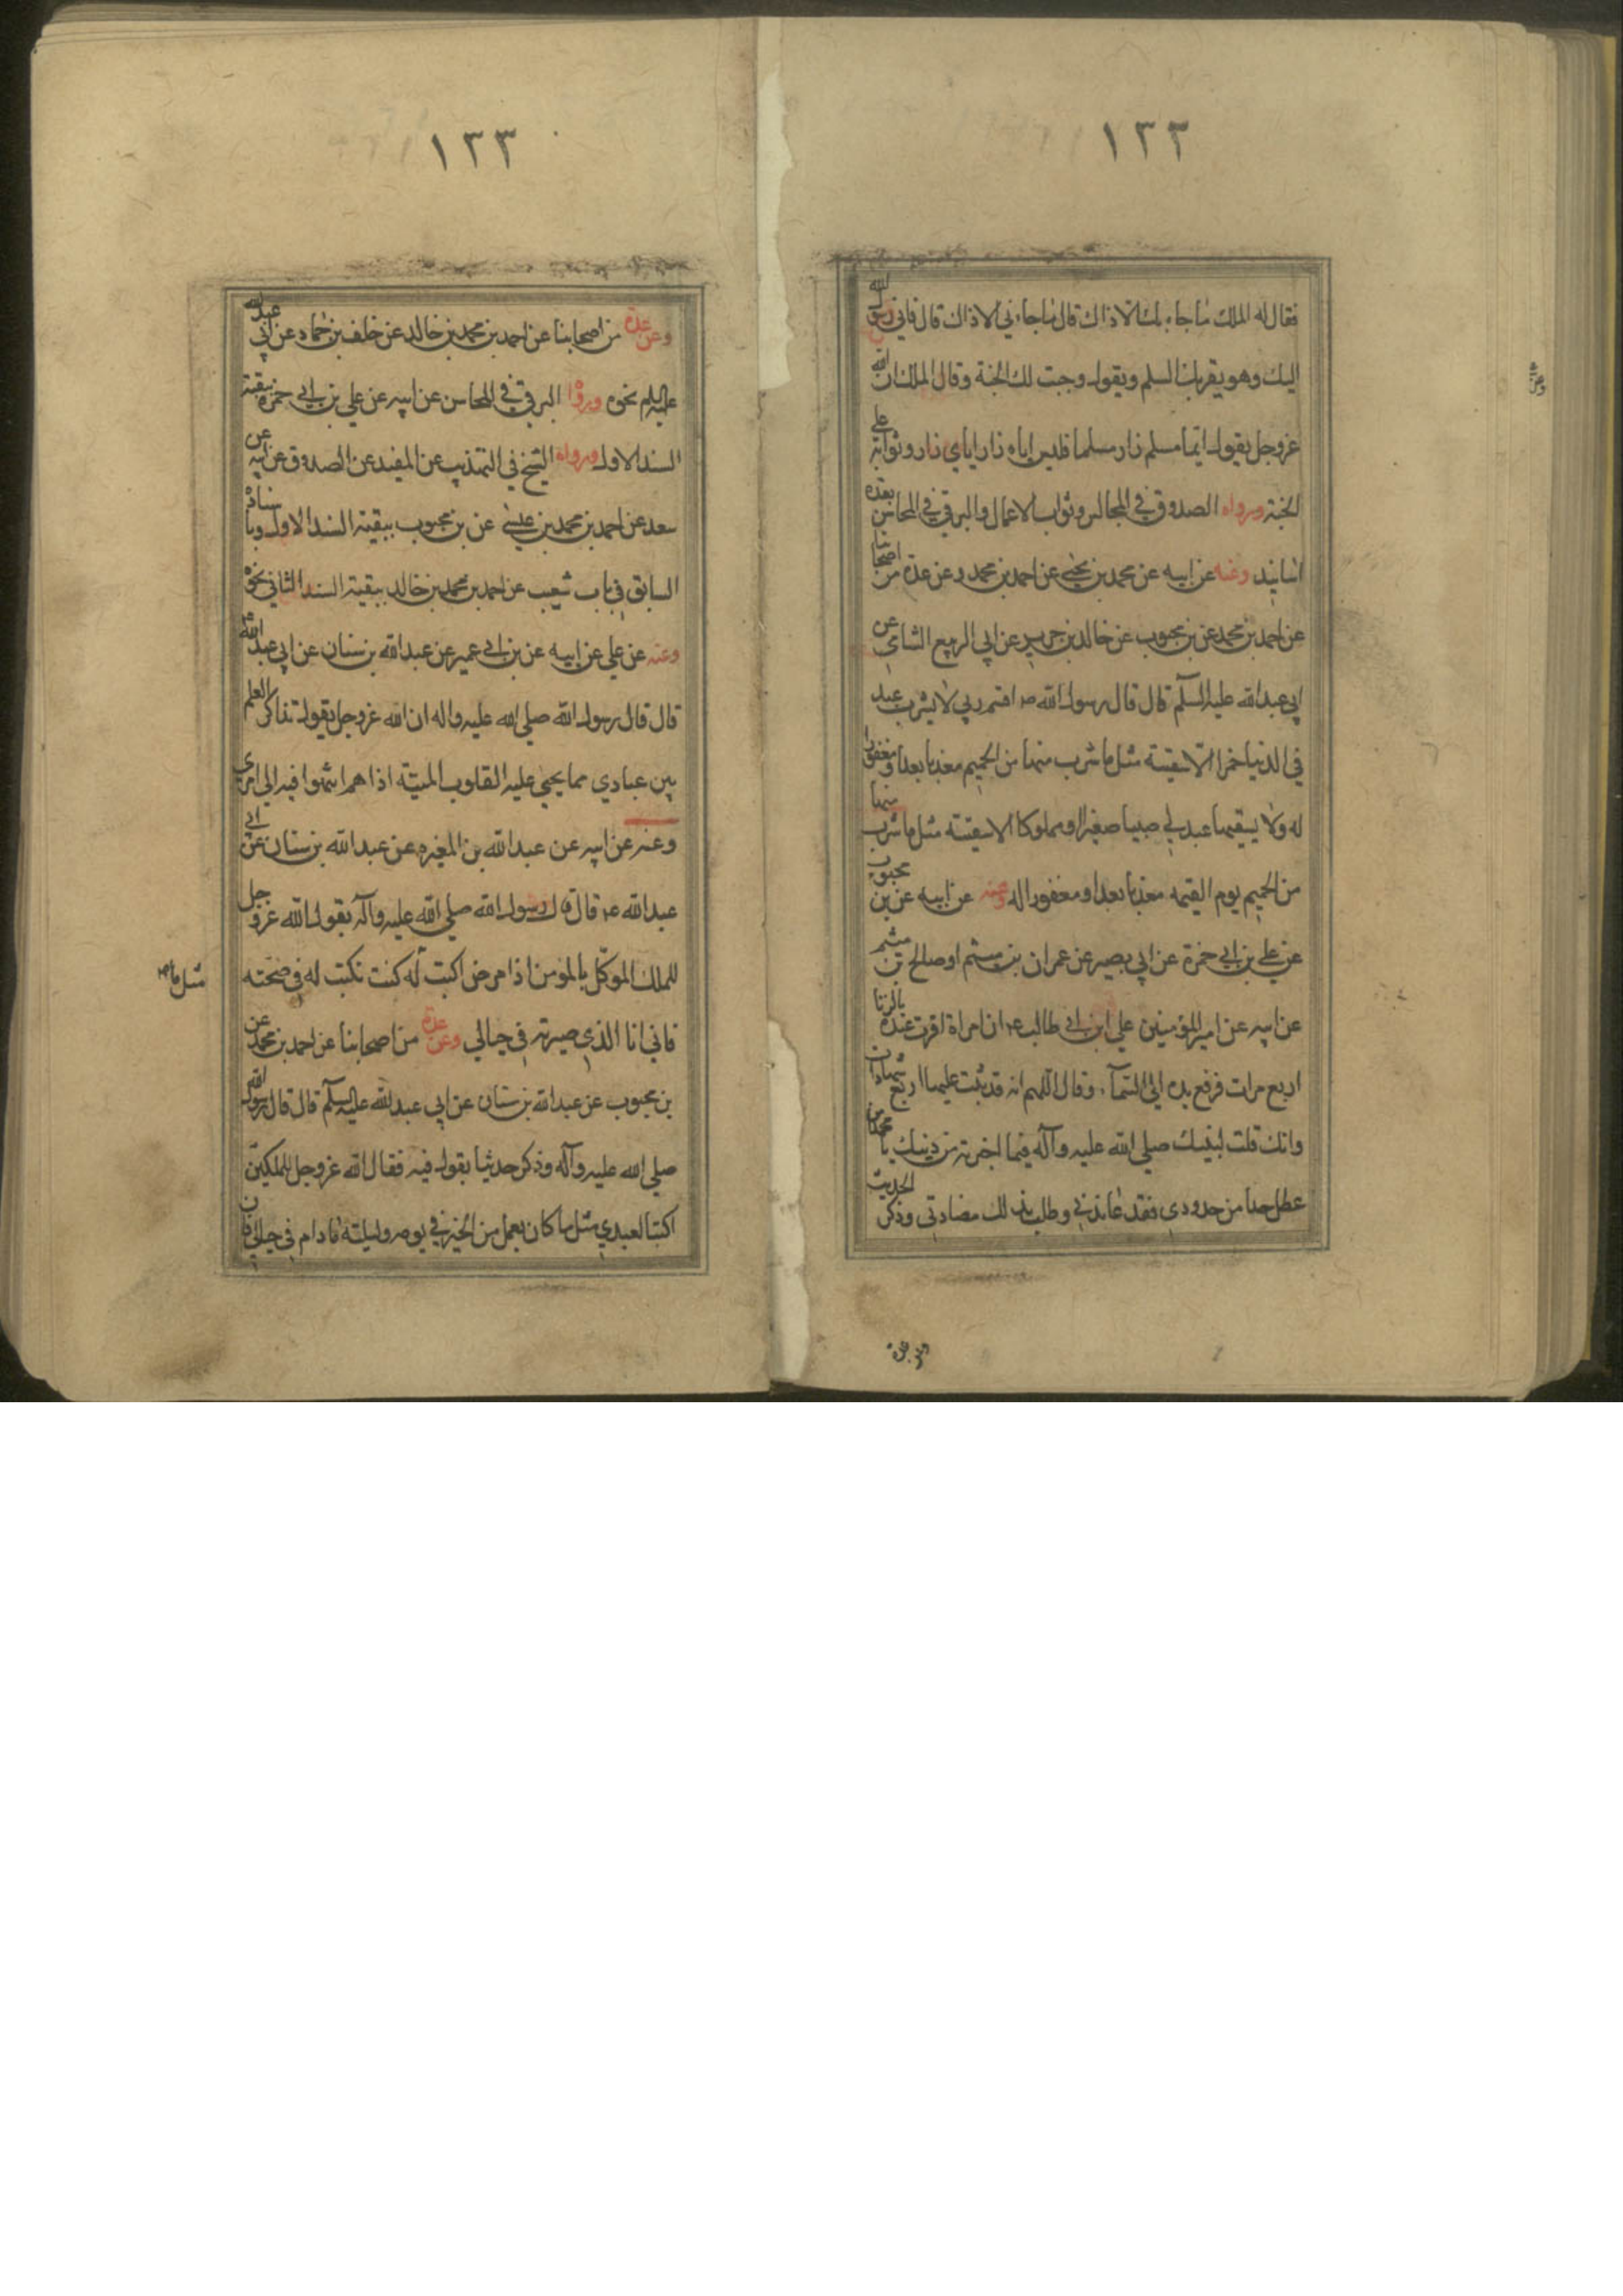 ١٣٣
فقال له الملك ما جاء بك الا ذاك قال ما جاءني الا ذاك قال فاني رسول الله
اليك وهو يقربك السلم ويقول وجبت لك الجنة وقال الملك ان الله
عز وجل يقول ايما مسلم زار مسلما فليس اياه زار اياي زار وثوابه علي
الجنة ورواه الصدوق في المجالس وثواب الاعمال والبرقي في المحاسن بعدة
اسانيد وعنه عن ابيه عن محمد بن يحيى عن احمد بن محمد وعن عدة من اصحابنا
عن احمد بن محمد عن بن محبوب عن خالد بن جرير عن ابي الربيع الشامي عن
ابي عبد الله عليه السلام قال قال رسول الله ص اقسم ربي لا يشرب عبد
في الدنيا خمرا الا سقيته مثل ما شرب منها من الحميم معذبا بعد او مغفورا
له ولا يسقيها عبد لي صبيا صغيرا او مملوكا الا سقيته مثل ما شرب منها
من الحميم يوم القيمه معذبا بعد او مغفورا له وعنه عن ابيه عن بن محبوب
عن علي بن ابي حمزة عن ابي بصير عن عمران بن ميثم او صالح بن ميثم
عن ابيه عن امير المؤمنين علي ابن ابي طالب ع ان امراة اقرت عنده بالزنا
اربع مرات فرفع يده الى السماء وقال اللهم انه قد ثبت عليها اربع شهادات
وانك قلت لنبيك صلى الله عليه وآله فيما اخبرته من دينك يا محمد من
عطل حدا من حدودي فقد عاندني وطلب بذلك مضادتي وذكر الحديث
وعن عدة
١٣٣
وعن عدة من اصحابنا عن احمد بن محمد بن خالد عن خلف بن حماد عن ابي عبد الله
عليه السلم نحوه ورواه البرقي في المحاسن عن ابيه عن علي بن ابي حمزة ببقية
السند الاول ورواه الشيخ في التهذيب عن المفيد عن الصدوق عن ابيه عن
سعد عن احمد بن محمد بن عيسى عن بن محبوب ببقية السند الاول وباسناده
السابق في باب شعيب عن احمد بن محمد بن خالد ببقية السند الثاني نحوه
وعنه عن علي عن ابيه عن بن ابي عمير عن عبد الله بن سنان عن ابي عبد الله
قال قال رسول الله صلى الله عليه واله ان الله عز وجل يقول تذاكر العلم
بين عبادي مما يحيي عليه القلوب الميتة اذا هم انتهوا فيه الى امري
وعنه عن ابيه عن عبد الله بن المغيره عن عبد الله بن سنان عن ابي
عبد الله ع قال قال رسول الله صلى الله عليه وآله يقول الله عز وجل
للملك الموكل بالمؤمن اذا مرض اكتب له كنت تكتب له في صحته
مثل ما صح
فاني انا الذي صيرته في حبالي وعن عدة من اصحابنا عن احمد بن محمد عن
بن محبوب عن عبد الله بن سنان عن ابي عبد الله عليه السلام قال قال رسول الله
صلى الله عليه وآله وذكر حديثا يقول فيه فقال الله عز وجل للملكين
اكتبا لعبدي مثل ما كان يعمل من الخير في يومه وليلته ما دام في حبالي فان